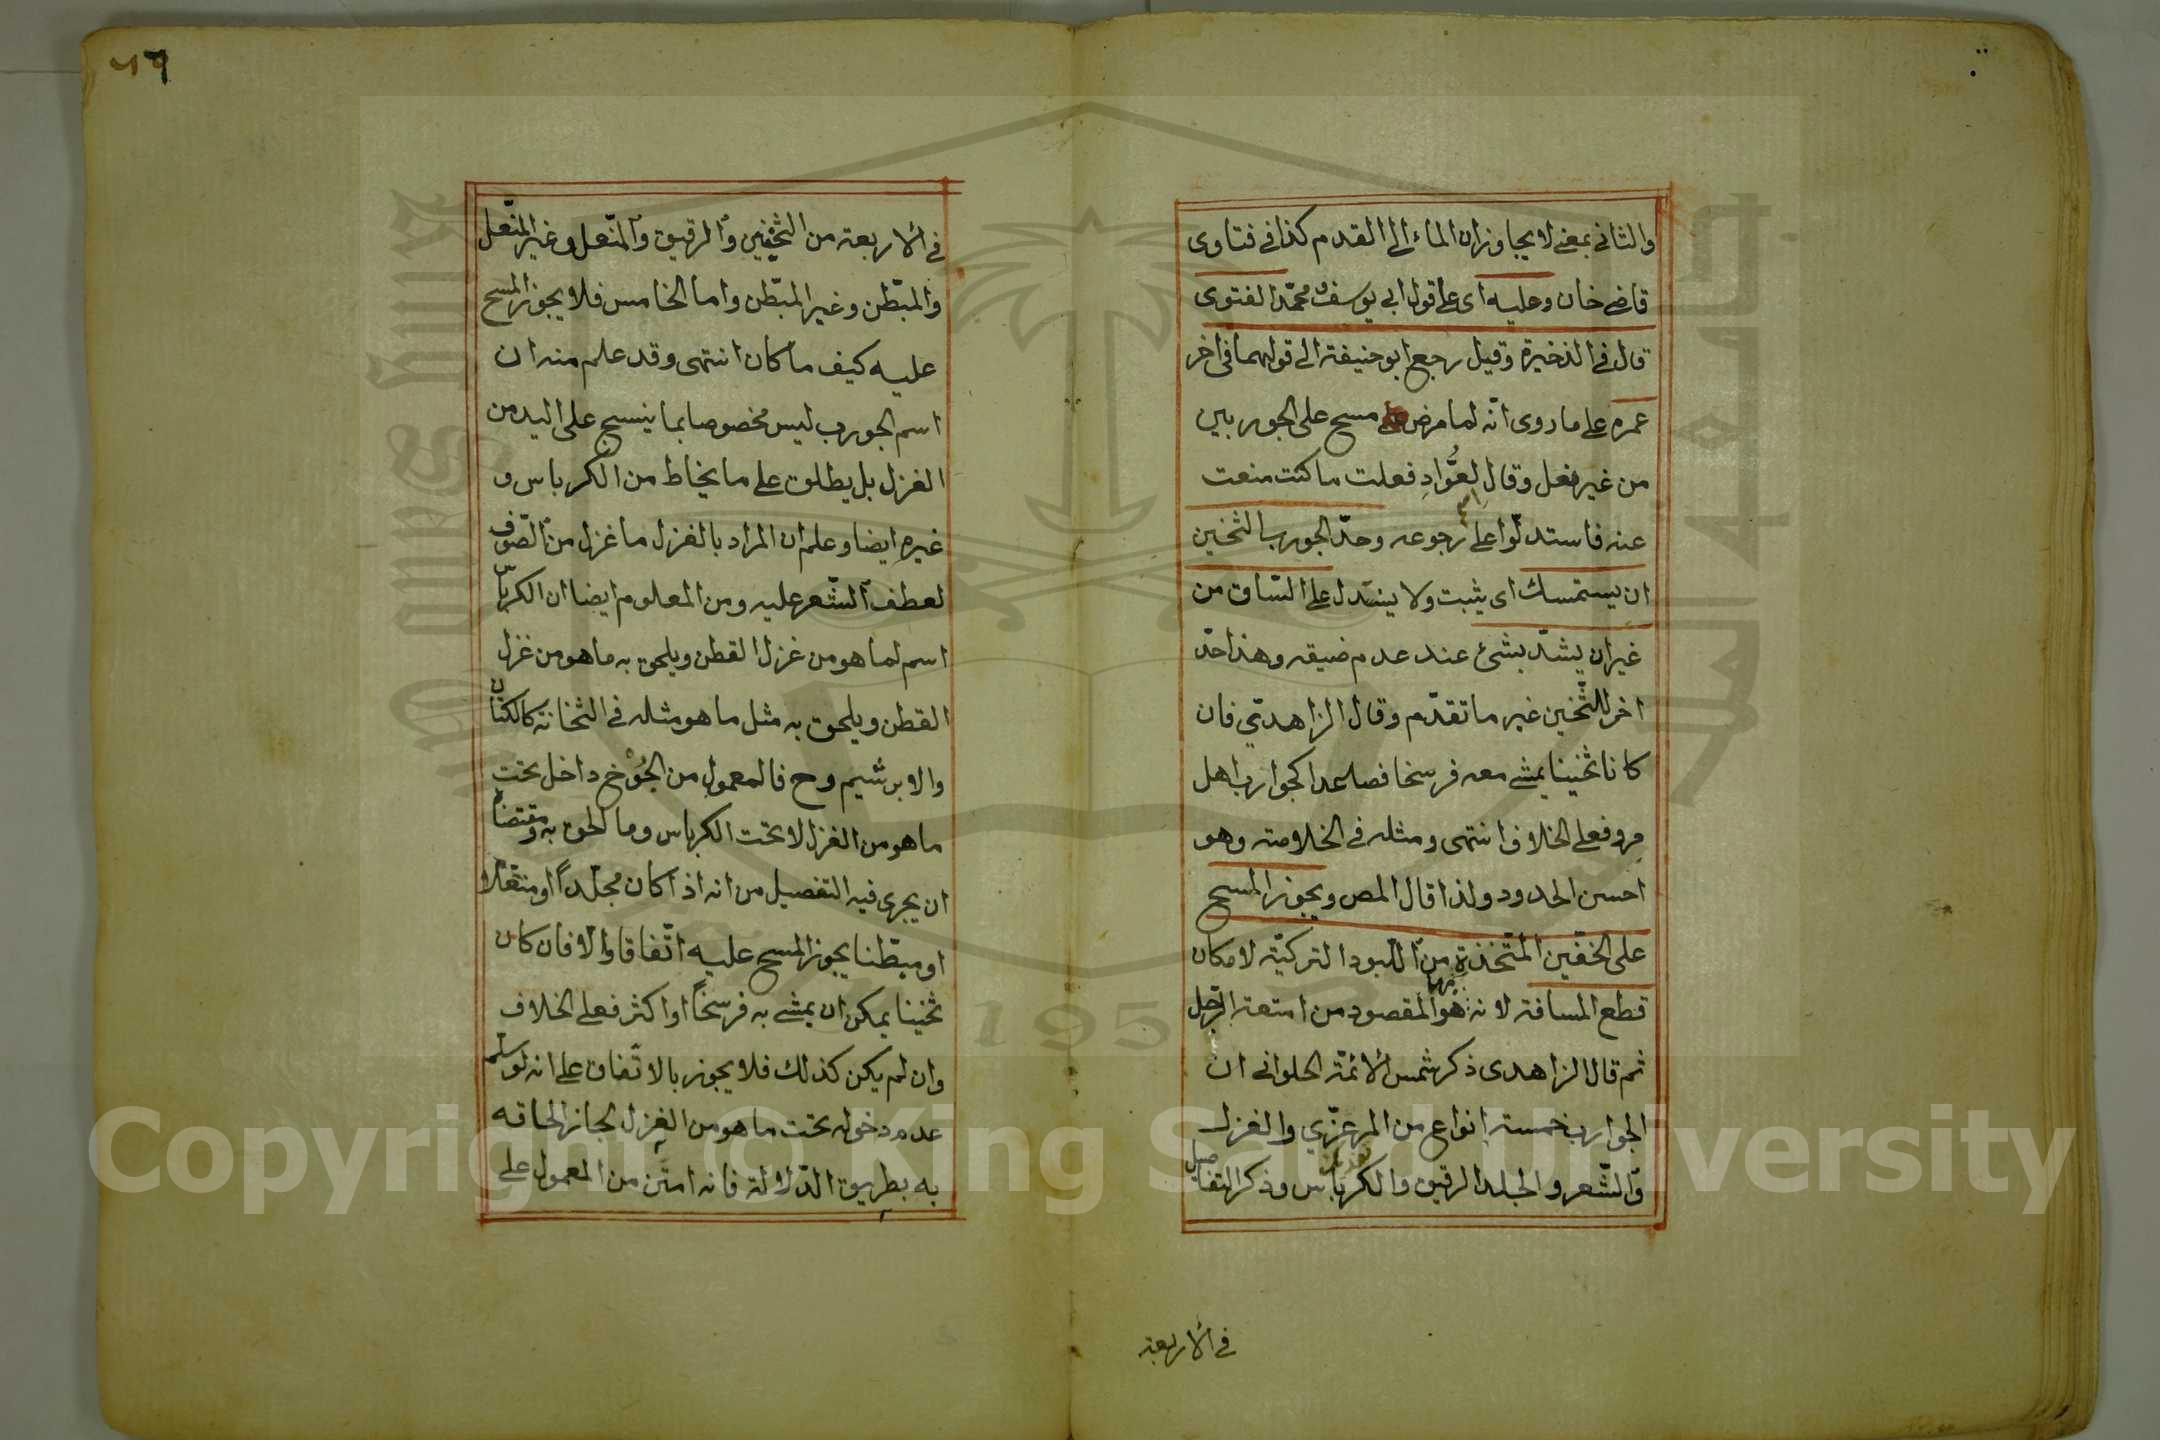 والثاني بمعنى لا يجاوزان الماء الى القدم كذا في فتاوى
قاضي خان وعليه اى على قول ابى يوسف ومحمد الفتوى
قال في الذخيرة وقيل رجع ابو حنيفة الى قولهما في اخر
عمره على ما روى انّه لما مرض مسح على الجوربين
من غير نعل وقال لعُوّادِ فعلت ما كنت منعت
عنه فاستدلّوا على رجوعه وحدّ الجورب الثخنين
ان يستمسك اى يثبت ولا ينسدل على الساق من
غير ان يشدّ بشئ عند عدم ضيقه وهذا حدّ
اخر للثّخنين غير ما تقدّم وقال الزاهدي فان
كانا ثخنينا يمشي معه فرسخا فصاعدا كجوارب اهل
مرو فعلى الخلاف انتهى ومثله في الخلاصة وهو
احسن الحدود ولذا قال المص ويجوز المسح
على الخفّين المتّخذة من اللبود التركيّة لامكان
قطع المسافة بها لانه هو المقصود من امتعة الرّجل
ثم قال الزاهدى ذكر شمس الائمّة الحلوانى ان
الجوارب خمسة انواع من المرعزّي والغزل
والشّعر والجلد الرقيق والكرباس وذكر التفاصيل
في الاربعة
٥٦
في الاربعة من الثخين والرقيق والمنّعل وغير المنّعل
والمبّطن وغير المبّطن واما الخامس فلا يجوز المسح
عليه كيف ما كان انتهى وقد علم منه ان
اسم الجورب ليس مخصوصا بما ينسج على اليد من
الغزل بل يطلق على ما يخاط من الكرباس و
غيره ايضا وعلم ان المراد بالغزل ما غزل من الصّوف
لعطف الشّعر عليه ومن المعلوم ايضا ان الكرباس
اسم لما هو من غزل القطن ويلحق به ما هو من غزل
القطن ويلحق به مثل ما هو مثله في الثخانة كالكتّان
والابرشيم وح فالمعمول من الجُوْخ داخل تحت
ما هو من الغزل لا تحت الكرباس وما الحق به ومقتضاه
ان يجرى فيه التفصيل من انه اذا كان مجلّداً او منعّلا
او مبّطنا يجوز المسح عليه اتّفاقا والّا فان كان
ثخنينا يمكن ان يمشي به فرسخاً او اكثر فعلى الخلاف
وان لم يكن كذلك فلا يجوز بالاتّفاق على انه لو سلّم
عدم دخوله تحت ما هو من الغزل لجاز الحاقه
به بطريق الدّلالة فانه امتن من المعمول على
Copyright © King Saud University
1957